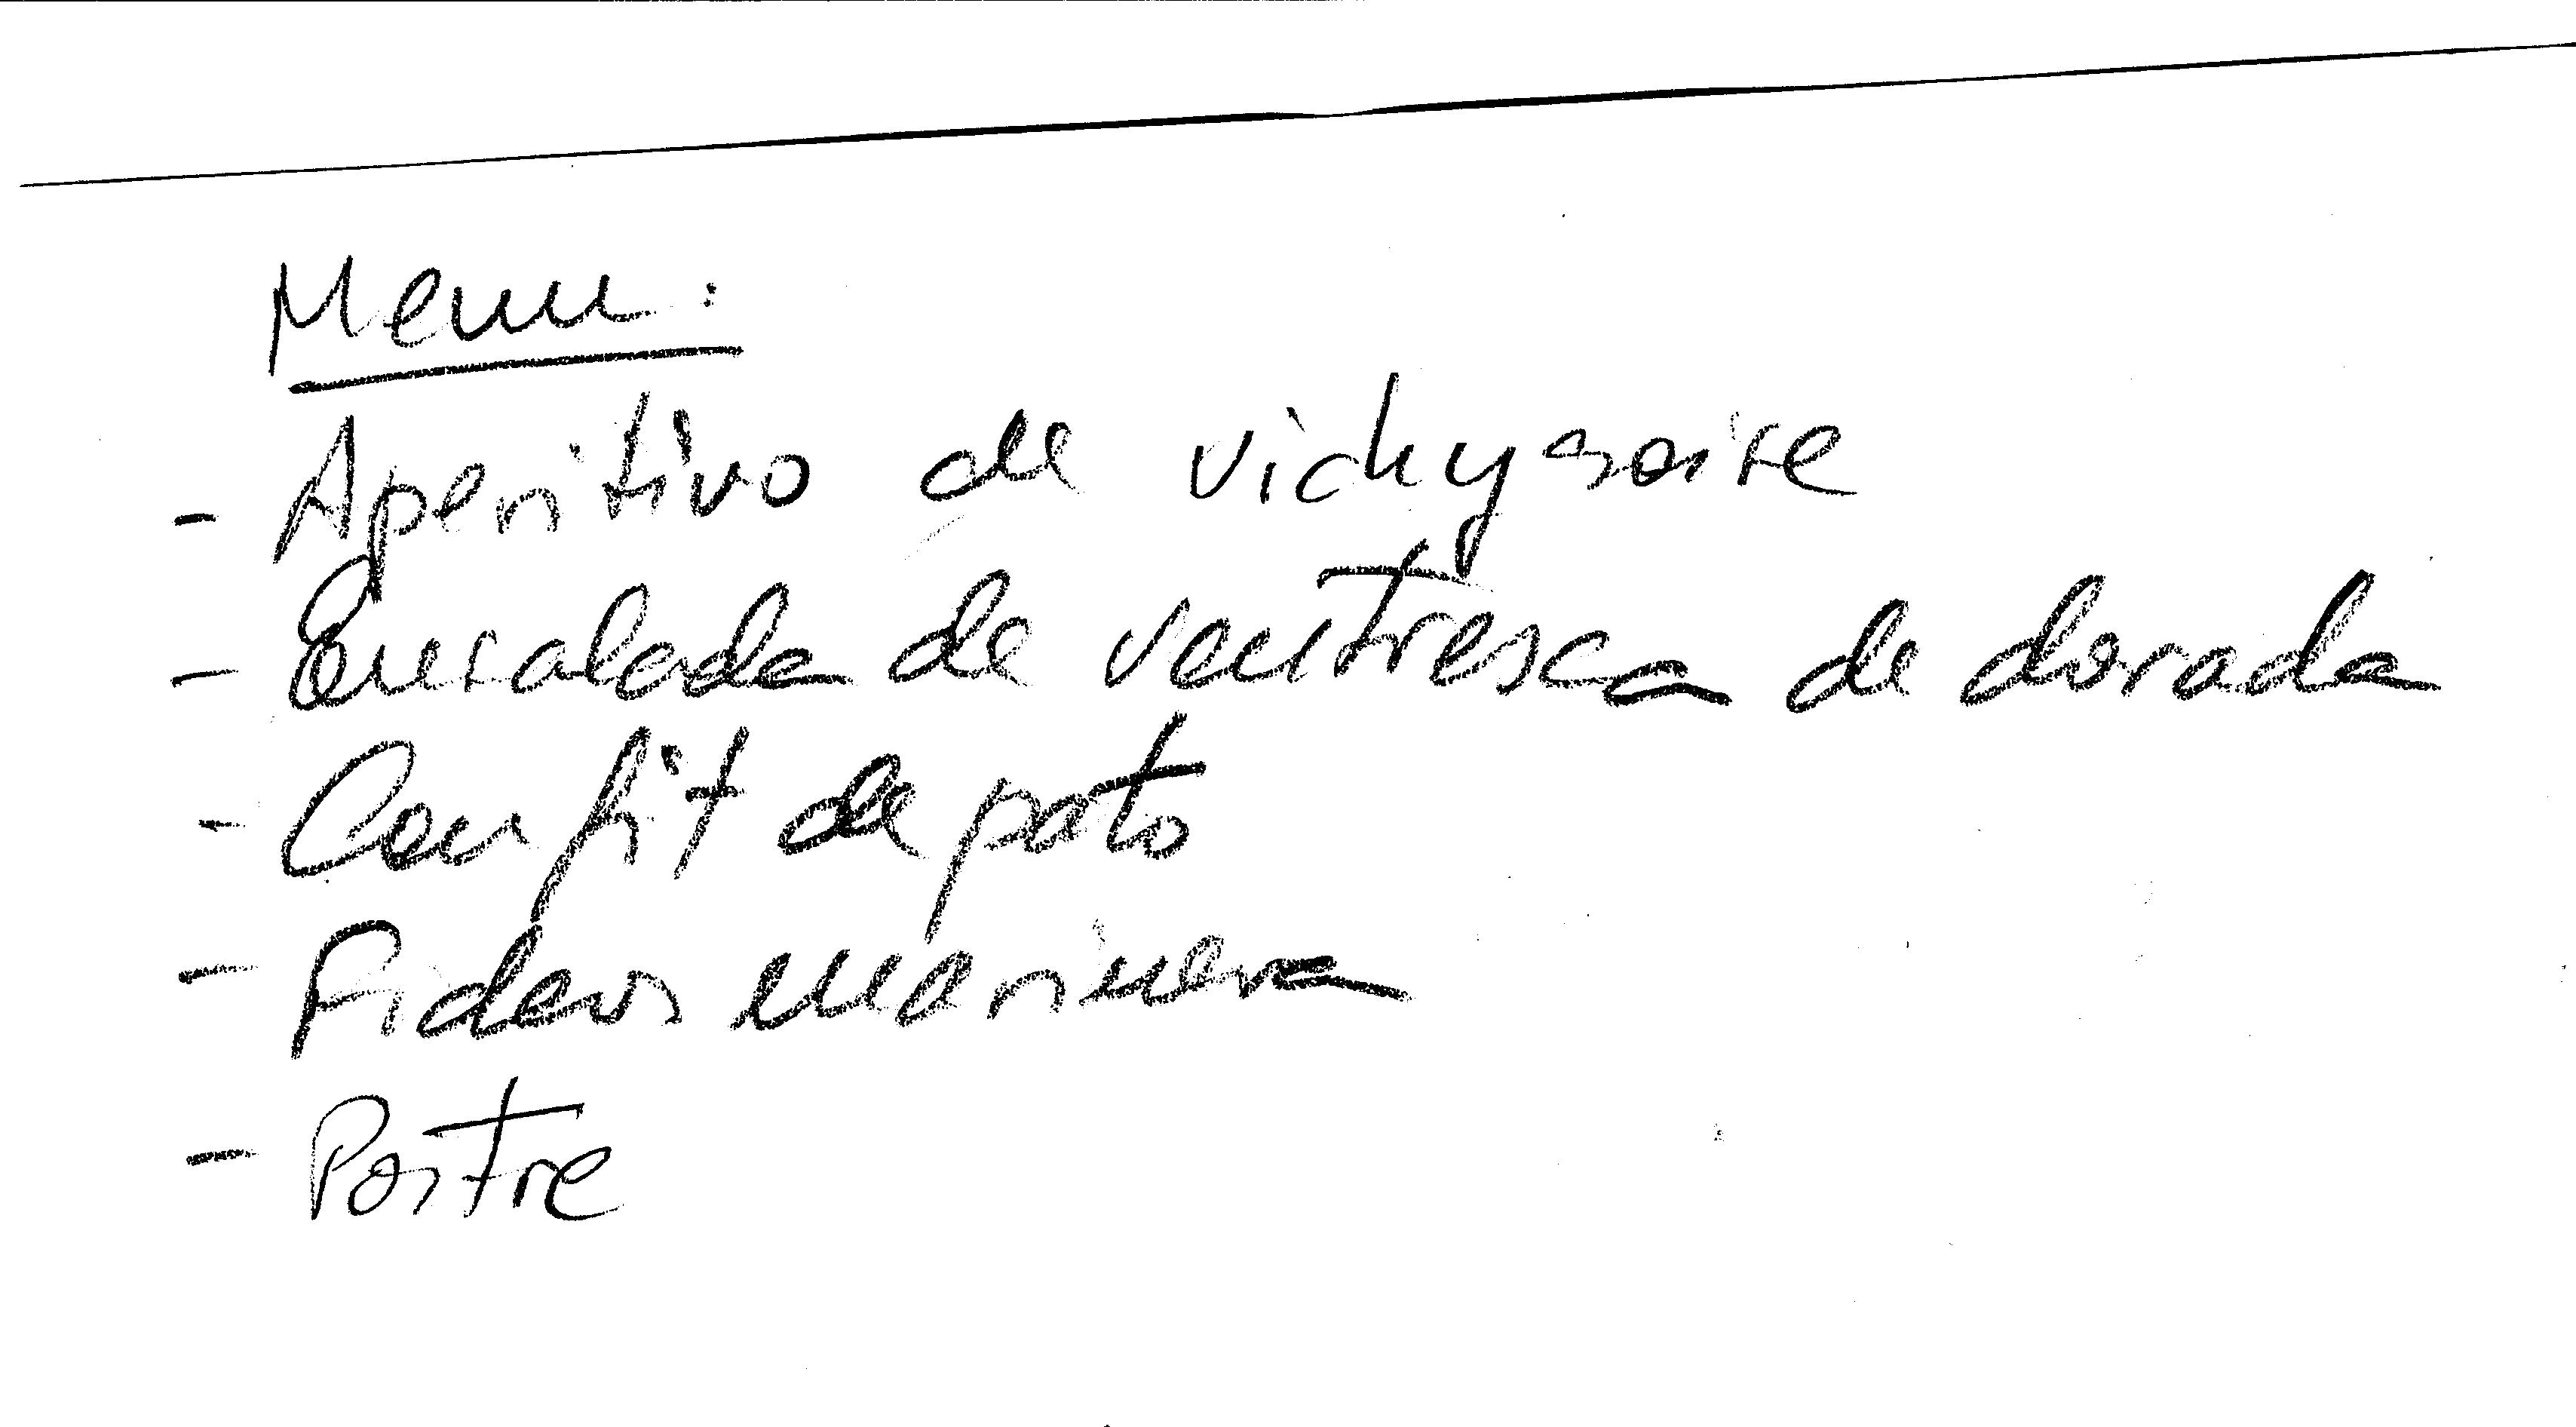 Menu:
- Aperitivo de vichysoise
- Ensalada de ventresca de dorada
- Confit de pato
- Fideos marinera
- Postre